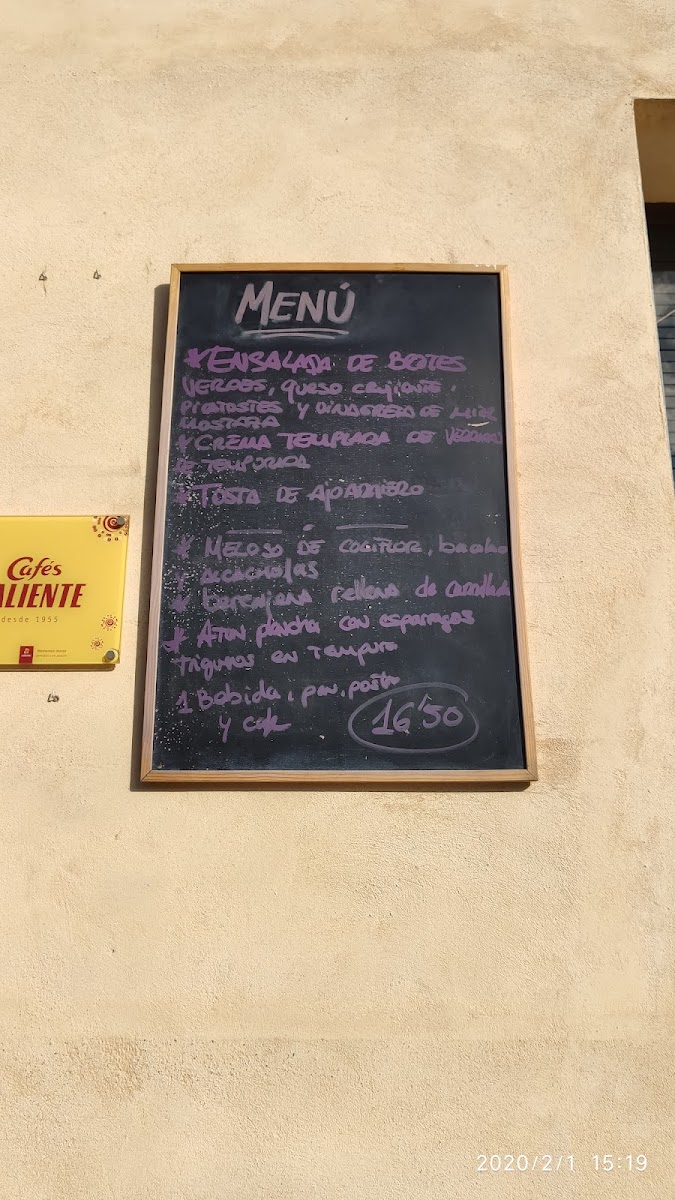 MENÚ
*ENSALADA DE BROTES
VERDES, QUESO CRUJIENTE,
PICATOSTES Y VINAGRETA DE MIEL
MOSTAZA
* CREMA TEMPLADA DE VERDURAS
DE TEMPORADA
* TOSTA DE AJOARRIERO
* MELOSO DE COLIFLOR, bacalao
Y ALCACHOFAS
* berenjena rellena de carrillada
* ATÚN plancha con esparragos
trigueros en Tempura
1 Bebida, pan, postre
y café
16'50
Cafés
ALIENTE
desde 1955
2020/2/1 15:19